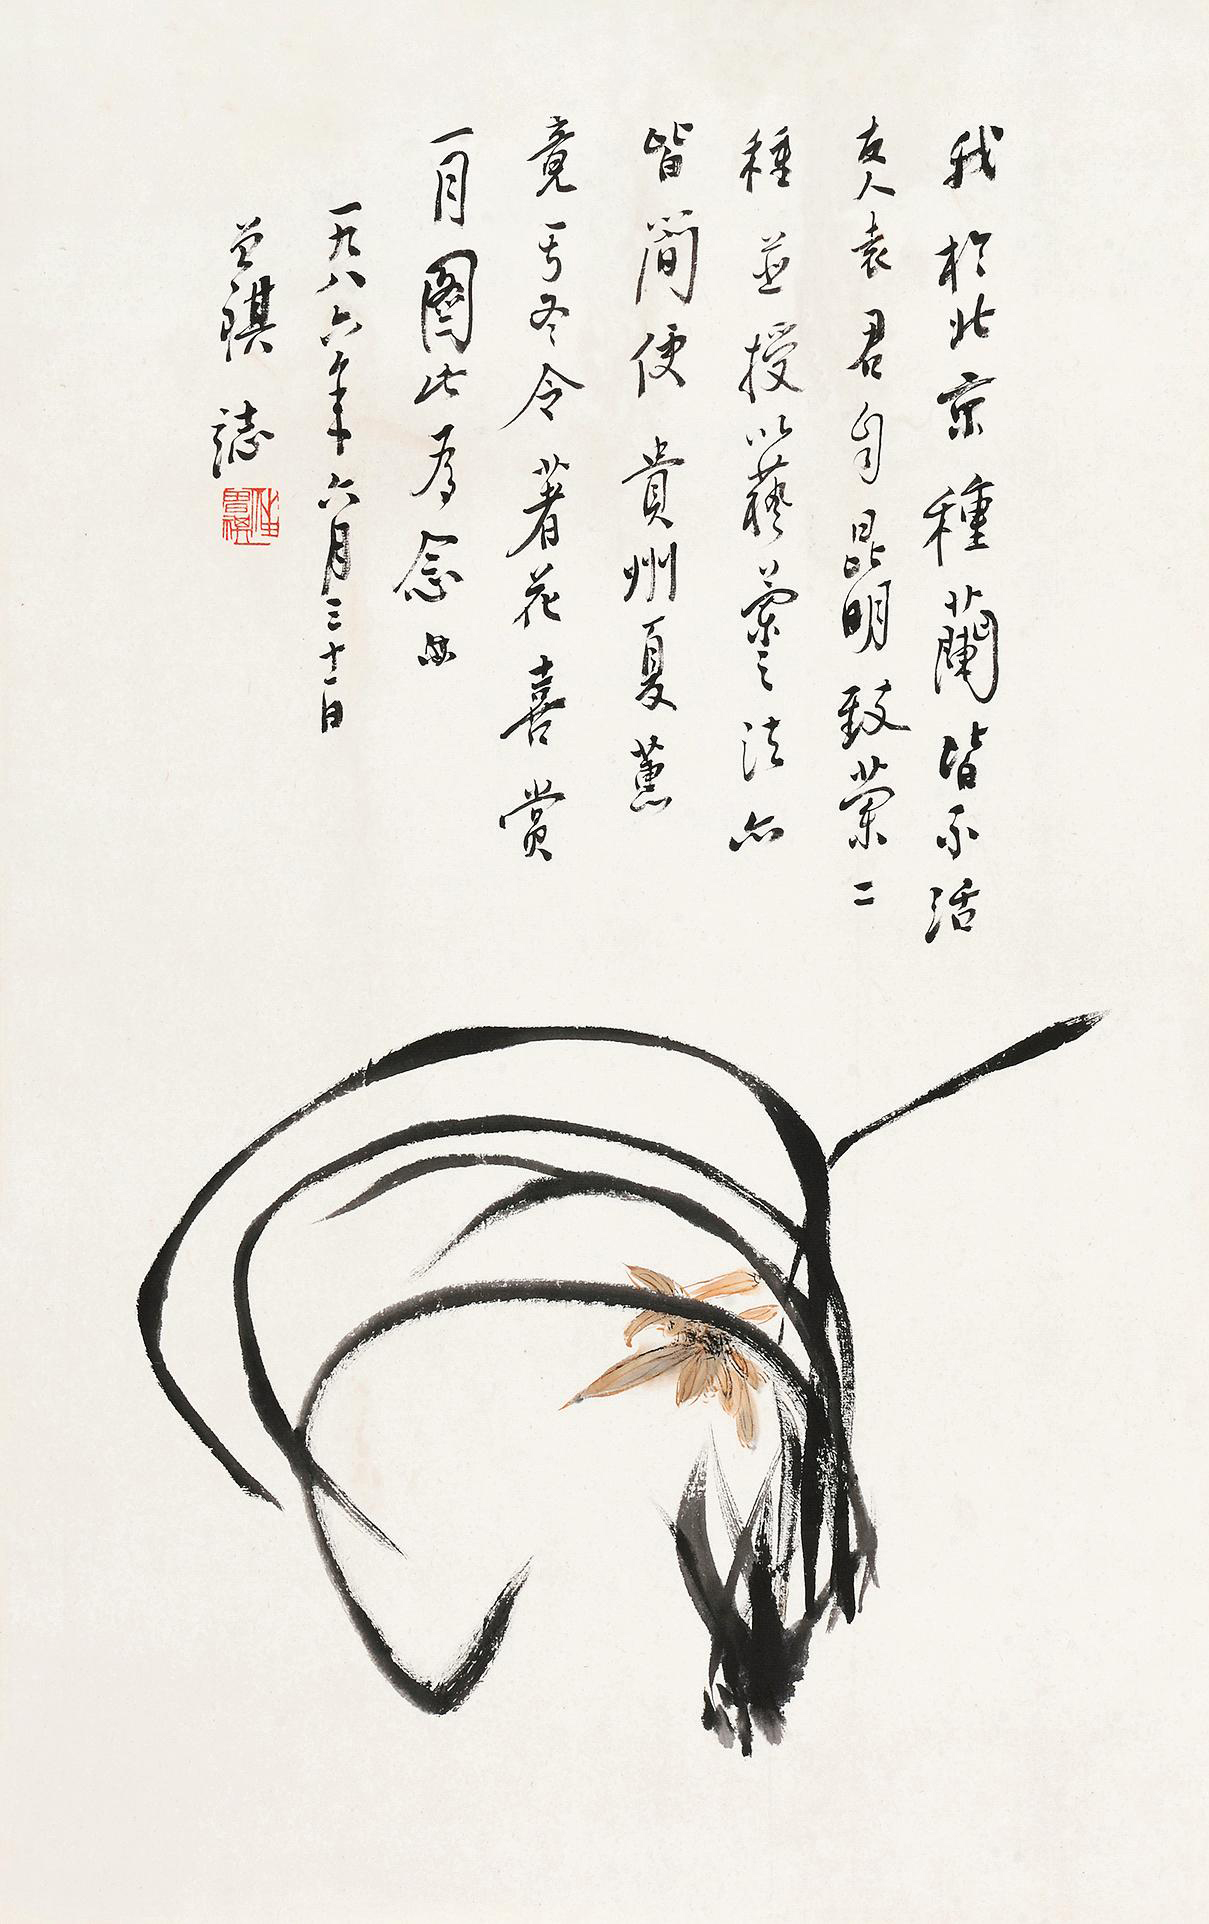 我於北京種蘭皆不活
友人袁君自昆明致蘭二
種並授以藝蘭之法亦
皆簡便貴州夏蕙
竟于冬令著花喜賞
一月圖此為念
一九八六年六月三十日
曾祺 誌
汪曾祺